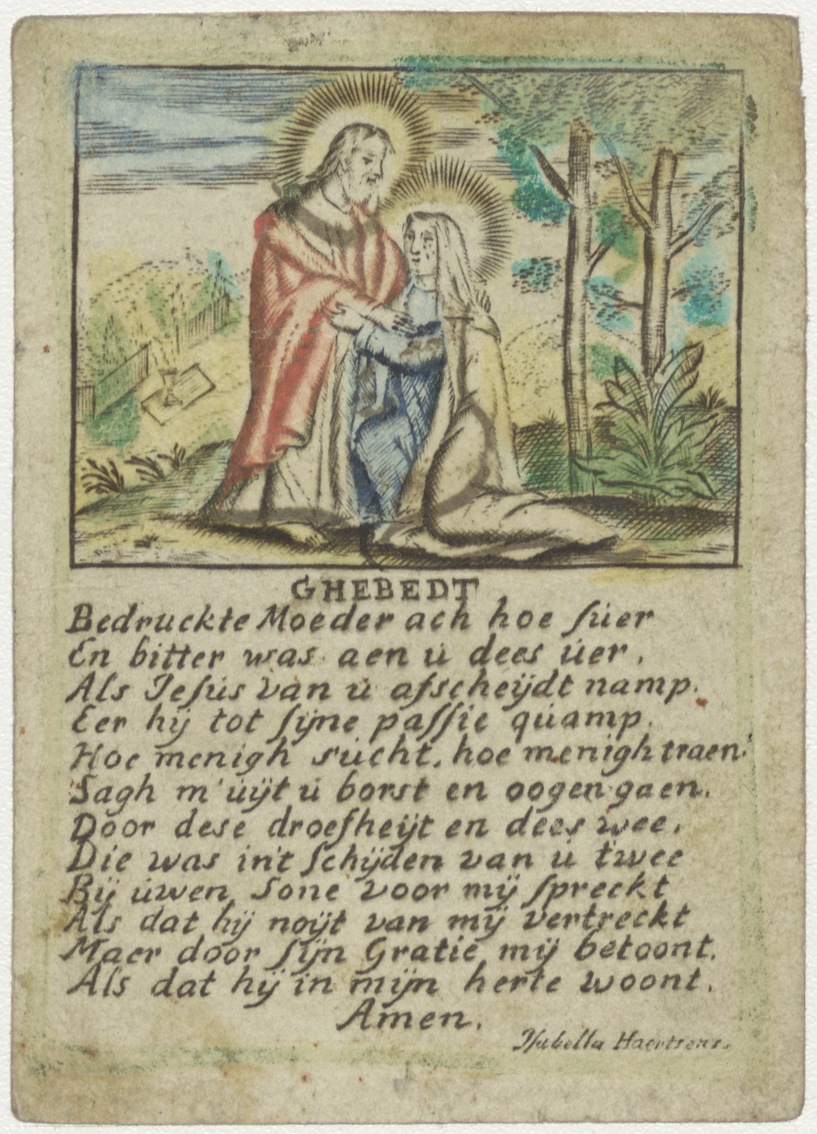 GHEBEDT
Bedruckte Moeder ach hoe súer
En bitter was aen ú dees úer,
Als Jesús van ú afscheÿdt namp.
Eer hÿ tot sÿne passie qúamp.
Hoe menigh súcht, hoe menigh traen
Sagh m'úÿt ú borst en oogen gaen.
Door dese droefheÿt en dees wee,
Die was in't schÿden van ú twee
Bÿ úwen Sone voor mÿ spreckt
Als dat hÿ noÿt van mÿ vertreckt
Maer door sÿn Gratie mÿ betoont,
Als dat hÿ in mÿn herte woont.
Amen.
Isabella Haertsens.